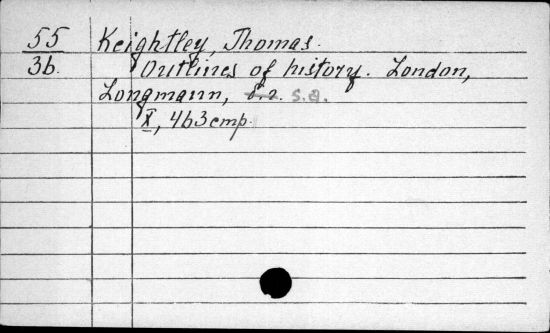 55 Keightley, Thomas.
36. Outlines of history. London,
Longmann, s.a.
X, 463 стр.